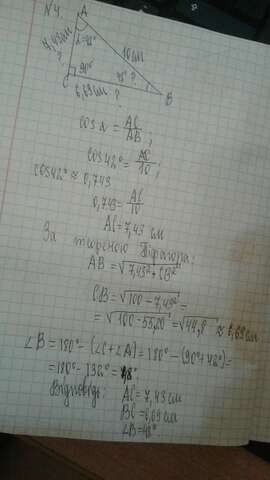 №4.
A
α=42°
7,43 см
?
10 см
90°
48° ?
C
B
6,69 см ?
cos α = AC/AB ;
cos42° = AC/10 ;
cos42° ≈ 0,743
0,743 = AC/10
AC = 7,43 см
За теремою Піфагора:
AB = √7,43² + CB²
CB = √100 - 7,43² =
= √100 - 55,20 = √44,8 ≈ 6,69 см
∠B = 180° - (∠C + ∠A) = 180° - (90° + 42°) =
= 180° - 132° = 48°
Відповідь: AC = 7,43 см
BC = 6,69 см
∠B = 48°